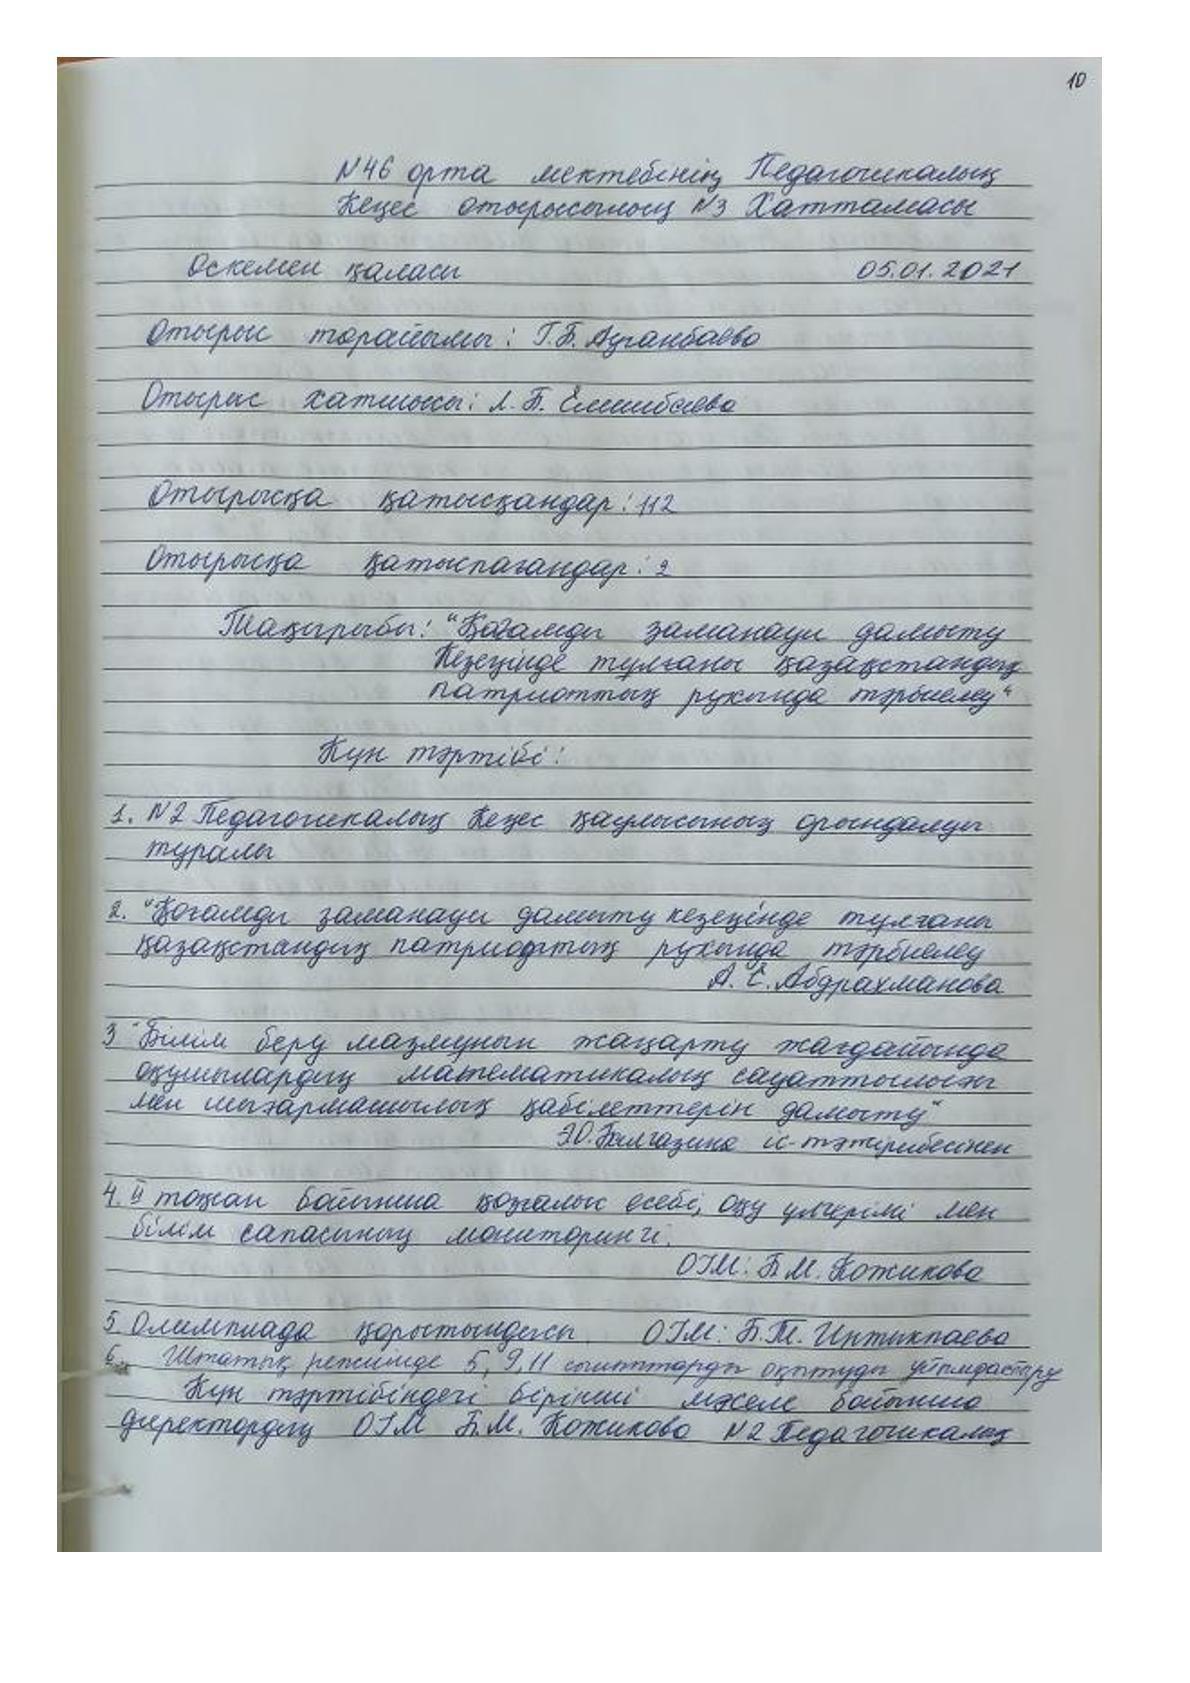 10
N46 орта мектебінің Педагогикалық
Кеңес отырысының N3 Хаттамасы
Өскемен қаласы 05.01.2021
Отырыс төрайымы: Г.Б. Ауганбаева
Отырыс хатшысы: Л.Б. Елшибаева
Отырысқа қатысқандар: 112
Отырысқа қатыспағандар: 2
Тақырыбы: "Қоғамды заманауи дамыту
кезеңінде тұлғаны қазақстандық
патриоттық рухында тәрбиелеу"
Күн тәртібі:
1. N2 Педагогикалық Кеңес қаулысының орындалуы
туралы
2. "Қоғамды заманауи дамыту кезеңінде тұлғаны
қазақстандық патриоттық рухында тәрбиелеу
А.С. Абдрахманова
3 "Білім беру мазмұнын жаңарту жағдайында
оқушылардың математикалық сауаттылығы
мен шығармашылық қабілеттерін дамыту"
Э.О. Балгазина іс-тәжірибесінен
4. II тоқсан бойынша қозғалыс есебі, оқу үлгерімі мен
білім сапасының мониторингі.
ОІМ: Б.М. Кожикова
5. Олимпиада қорытындысы. ОІМ: Б.Т. Интикпаева
6. Штаттық режимде 5, 9, 11 сыныптарды оқытуды ұйымдастыру
Күн тәртібіндегі бірінші мәселе бойынша
директордың ОІМ Б.М. Кожикова N2 Педагогикалық